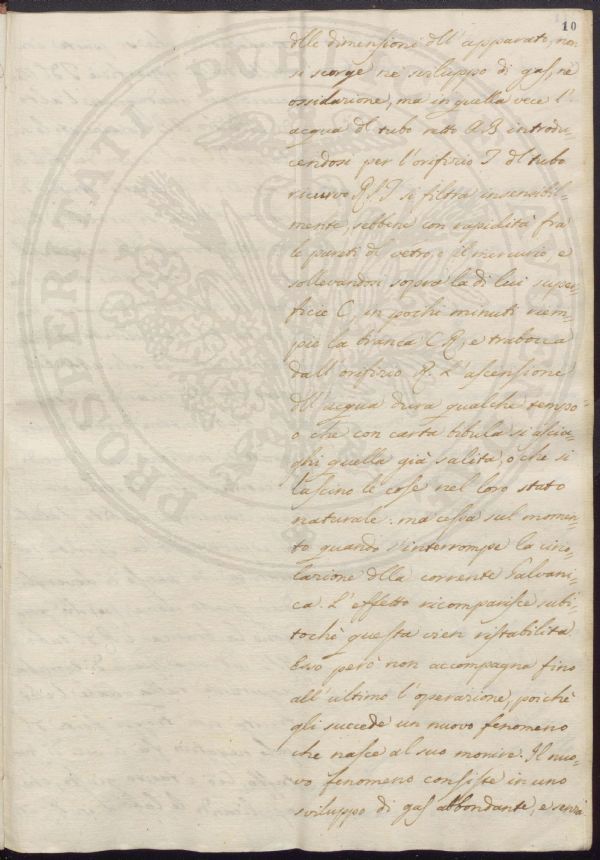 10
dlle dimensioni dll' apparato, non
si scorge nè sviluppo di gas, nè
ossidazione, ma in quella vece l'
acqua dl tubo retto A B introdu-
cendosi per l'orifizio T dl tubo
ricurvo R S T si filtra insensibil-
mente, sebbene con rapidità fra
le pareti dl vetro, e il mercurio, e
sollevandosi sopra la di lui super-
ficie C, in pochi minuti riem-
pie la branca C R, e trabocca
dall'orifizio R. L'ascensione
dll'acqua dura qualche tempo
o che con carta bibula si asciu-
ghi quella già salita, o che si
lascino le cose nel loro stato
naturale. ma cessa sul momen-
to quando s'interrompe la circo-
lazione dlla corrente Galvani-
ca. L'effetto ricomparisce subi-
tochè questa vien ristabilita
Esso però non accompagna fino
all'ultimo l'operazione, poichè
gli succede un nuovo fenomeno
che nasce al suo morire. Il nuo-
vo fenomeno consiste in uno
sviluppo di gas abbondante, e senza
PROSPERITATI PUBLICAE